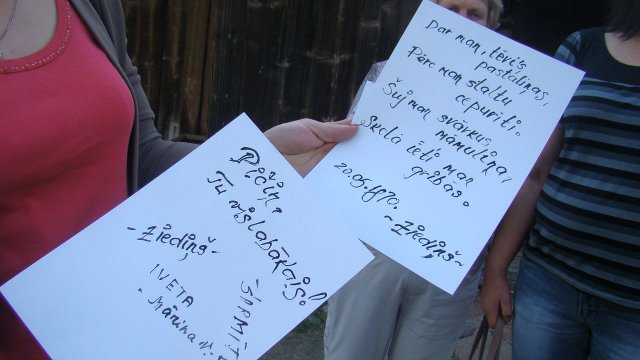 Dar man, tēvis
pastaliņas,
Pērc man staltu
cepurīti.
Šuj man svārkus,
māmuliņa,
Skolā ieti man
gribās.
20.05.1870.
~ Ziediņš ~
Pičin,
Tu vislabākais!
- Ziediņš -
IVETA
- Mārīna